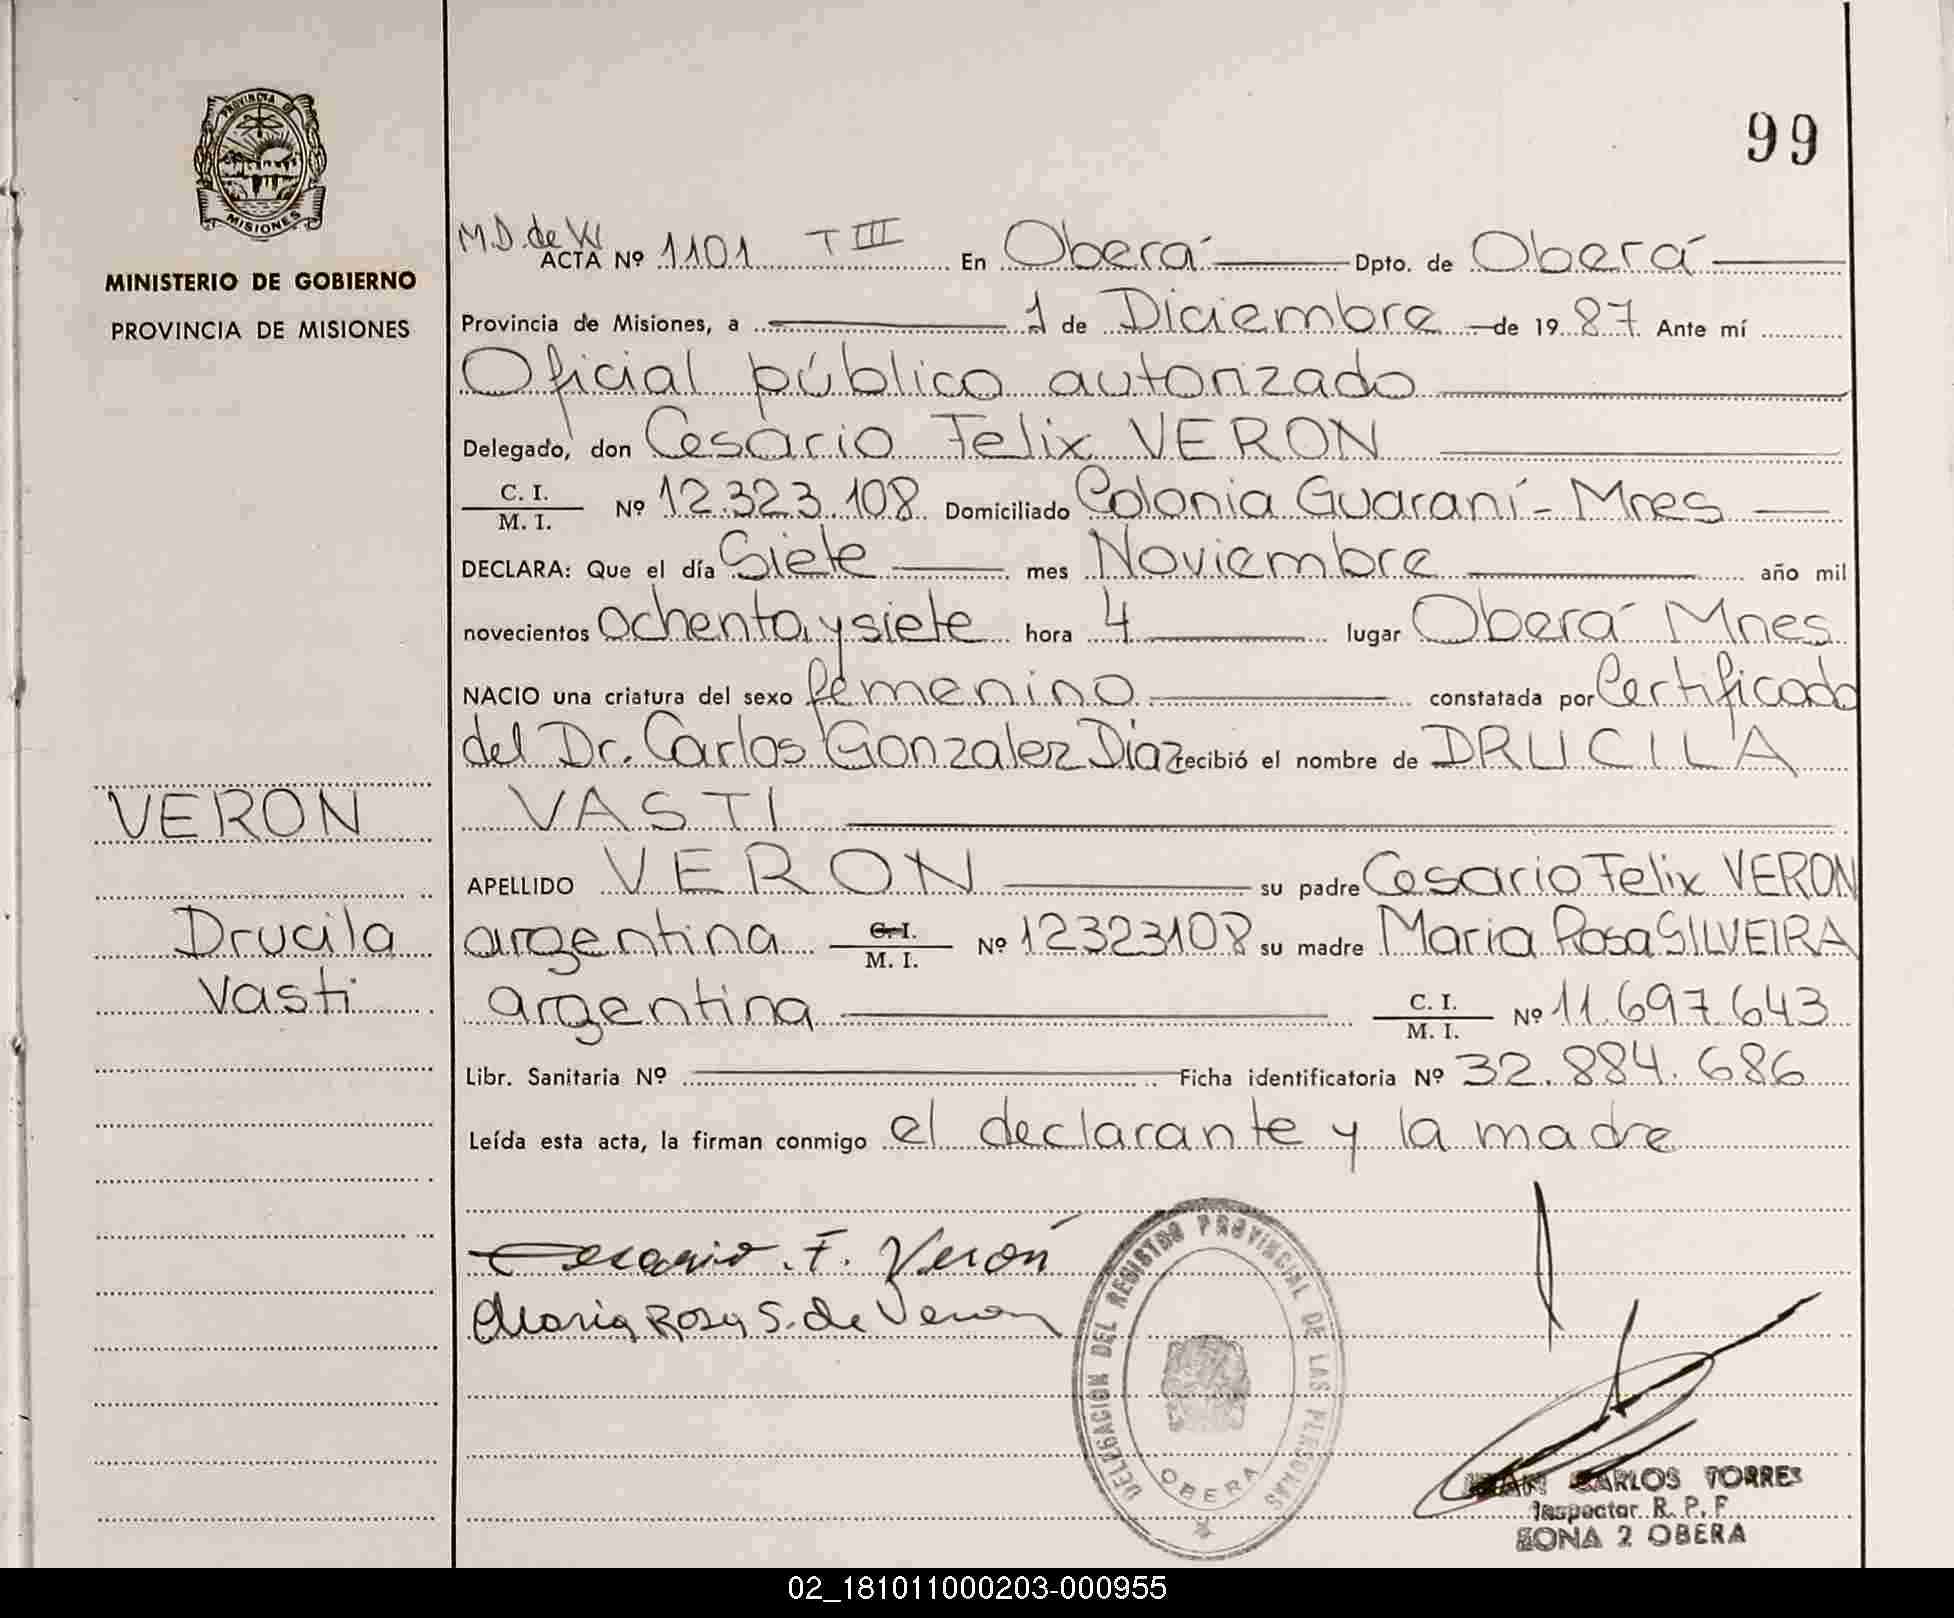 PROVINCIA DE
MISIONES
MINISTERIO DE GOBIERNO
PROVINCIA DE MISIONES
VERON
Drucila
Vasti
99
M.D. de W
ACTA Nº 1101 T III En Oberá Dpto. de Oberá
Provincia de Misiones, a 1 de Diciembre de 19 87 Ante mí
Oficial público autorizado
Delegado, don Cesario Felix VERON
C. I.
M. I. Nº 12.323.108 Domiciliado Colonia Guaraní - Mnes
DECLARA: Que el día Siete mes Noviembre año mil
novecientos ochenta y siete hora 4 lugar Oberá Mnes
NACIO una criatura del sexo femenino constatada por Certificado
del Dr. Carlos Gonzalez Diaz recibió el nombre de DRUCILA
VASTI
APELLIDO VERON su padre Cesario Felix VERON
argentina C. I.
M. I. Nº 12323108 su madre Maria Rosa SILVEIRA
argentina C. I.
M. I. Nº 11.697.643
Libr. Sanitaria Nº Ficha identificatoria Nº 32.884.686
Leída esta acta, la firman conmigo el declarante y la madre
Cesario . F. Verón
Maria Rosa S. de Veron
DELEGACION DEL REGISTRO PROVINCIAL DE LAS PERSONAS
OBERA
JUAN CARLOS TORRES
Inspector R. P. F
ZONA 2 OBERA
02_181011000203-000955